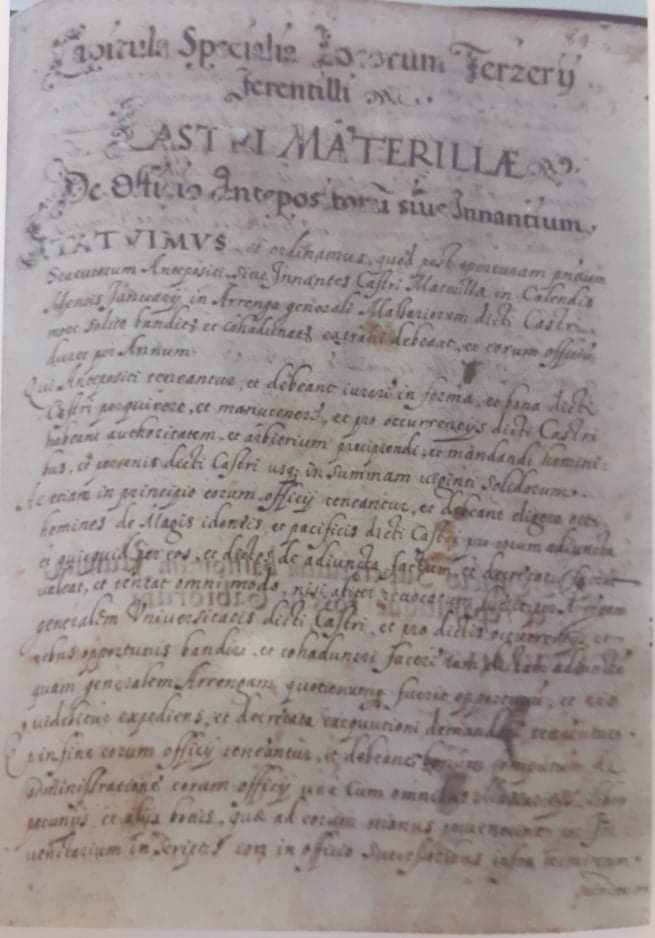 Capitula Specialia Locorum Terzerij
Ferentilli
CASTRI MATERILLÆ
De Officio Antepositorũ sive Innantium.
STATVIMVS et ordinamus, quod post
Statutorum Antepositi, sive Innantes Castri Materillæ in Calendis
Mensis Januarij in Arrenga generali Massariorum dicti Castri
more solito bandita et cohadunata debeant, et eorum officiũ
duret per Annum
Qui Antepositi teneantur, et debeant iurare in forma, et bona dicti
Castri perquirere, et manutenere, et pro occurrentijs dicti Castri
habeant authoritatem, et arbitrium precipiendi, et mandandi homini-
bus, et personis dicti Castri usq; in summam viginti solidorum.
Ac etiam in principio eorum officij teneantur, et debeant eligere octo
homines de Magis idoneis, et pacificis dicti Castri pro eorum adiuncta
et quicquid per eos, et dictos de adiuncta factum, et decretatũ fuerit
valeat, et teneat omnimodo, nisi aliter revocatum fuerit per Arengam
generalem Universitatis dicti Castri, et pro dictis occurrentijs et
rebus opportunis bandiri, et cohadunari facere tam adiunctã
quam generalem Arrengam quotiescumq; fuerit opportunũ, et eis
videbitur expediens, et decretata exequutioni demandare teneantur.
Et in fine eorum officij teneantur, et debeant bonum computum de
administratione eorum officij una cum omnibus
pecunijs, et alijs bonis, quæ ad eorum manus pervenerint in
ventarium in scriptis eorum in officio successoribus infra terminum